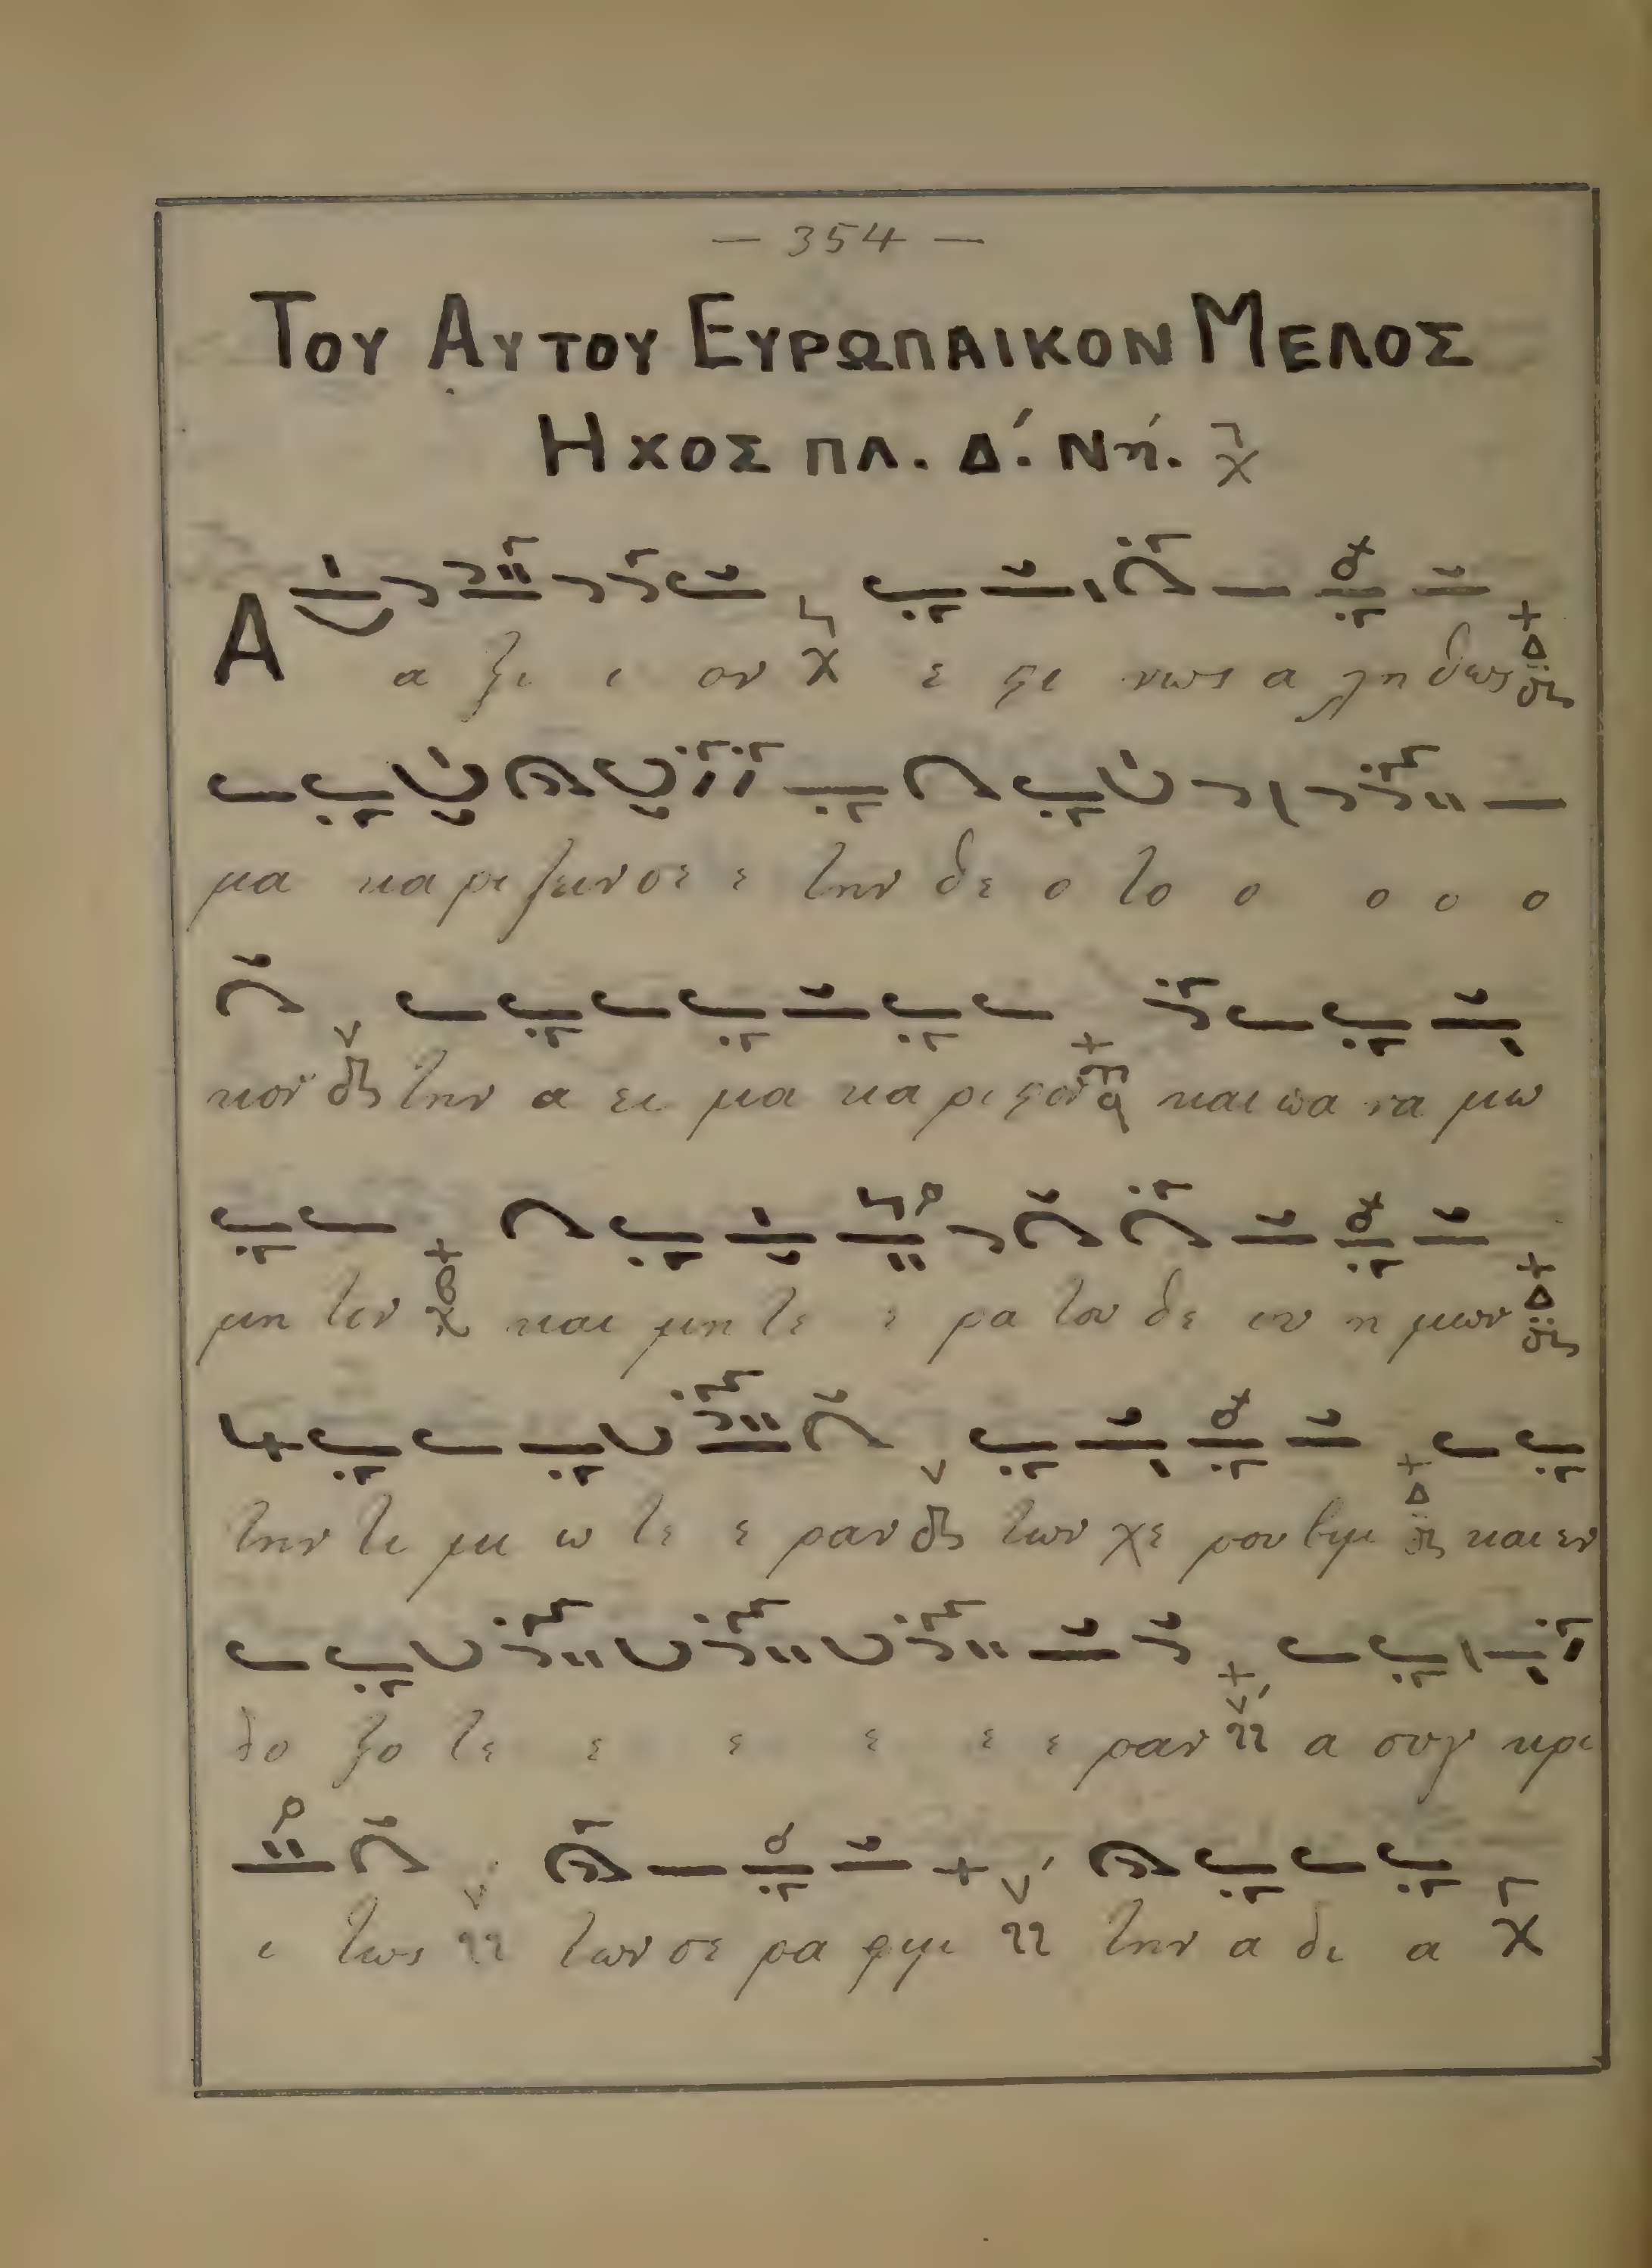 — 354 —
ΤΟΥ ΑΥΤΟΥ ΕΥΡΩΠΑΙΚΟΝ ΜΕΛΟΣ
ΗΧΟΣ ΠΛ. Δ΄. Νή.
Α α ξι ι ον ε στι νως α λη θως
μα κα ρι ζειν σε ε την θε ο το ο ο ο ο
κον την α ει μα κα ρι στον και πα να μω
μη τον και μη τε ε ρα του θε ου η μων
την τι μι ω τε ε ραν των χε ρου βιμ και εν
δο ξο τε ε ε ε ε ε ραν α συγ κρι
ι τως των σε ρα φιμ την α δι α